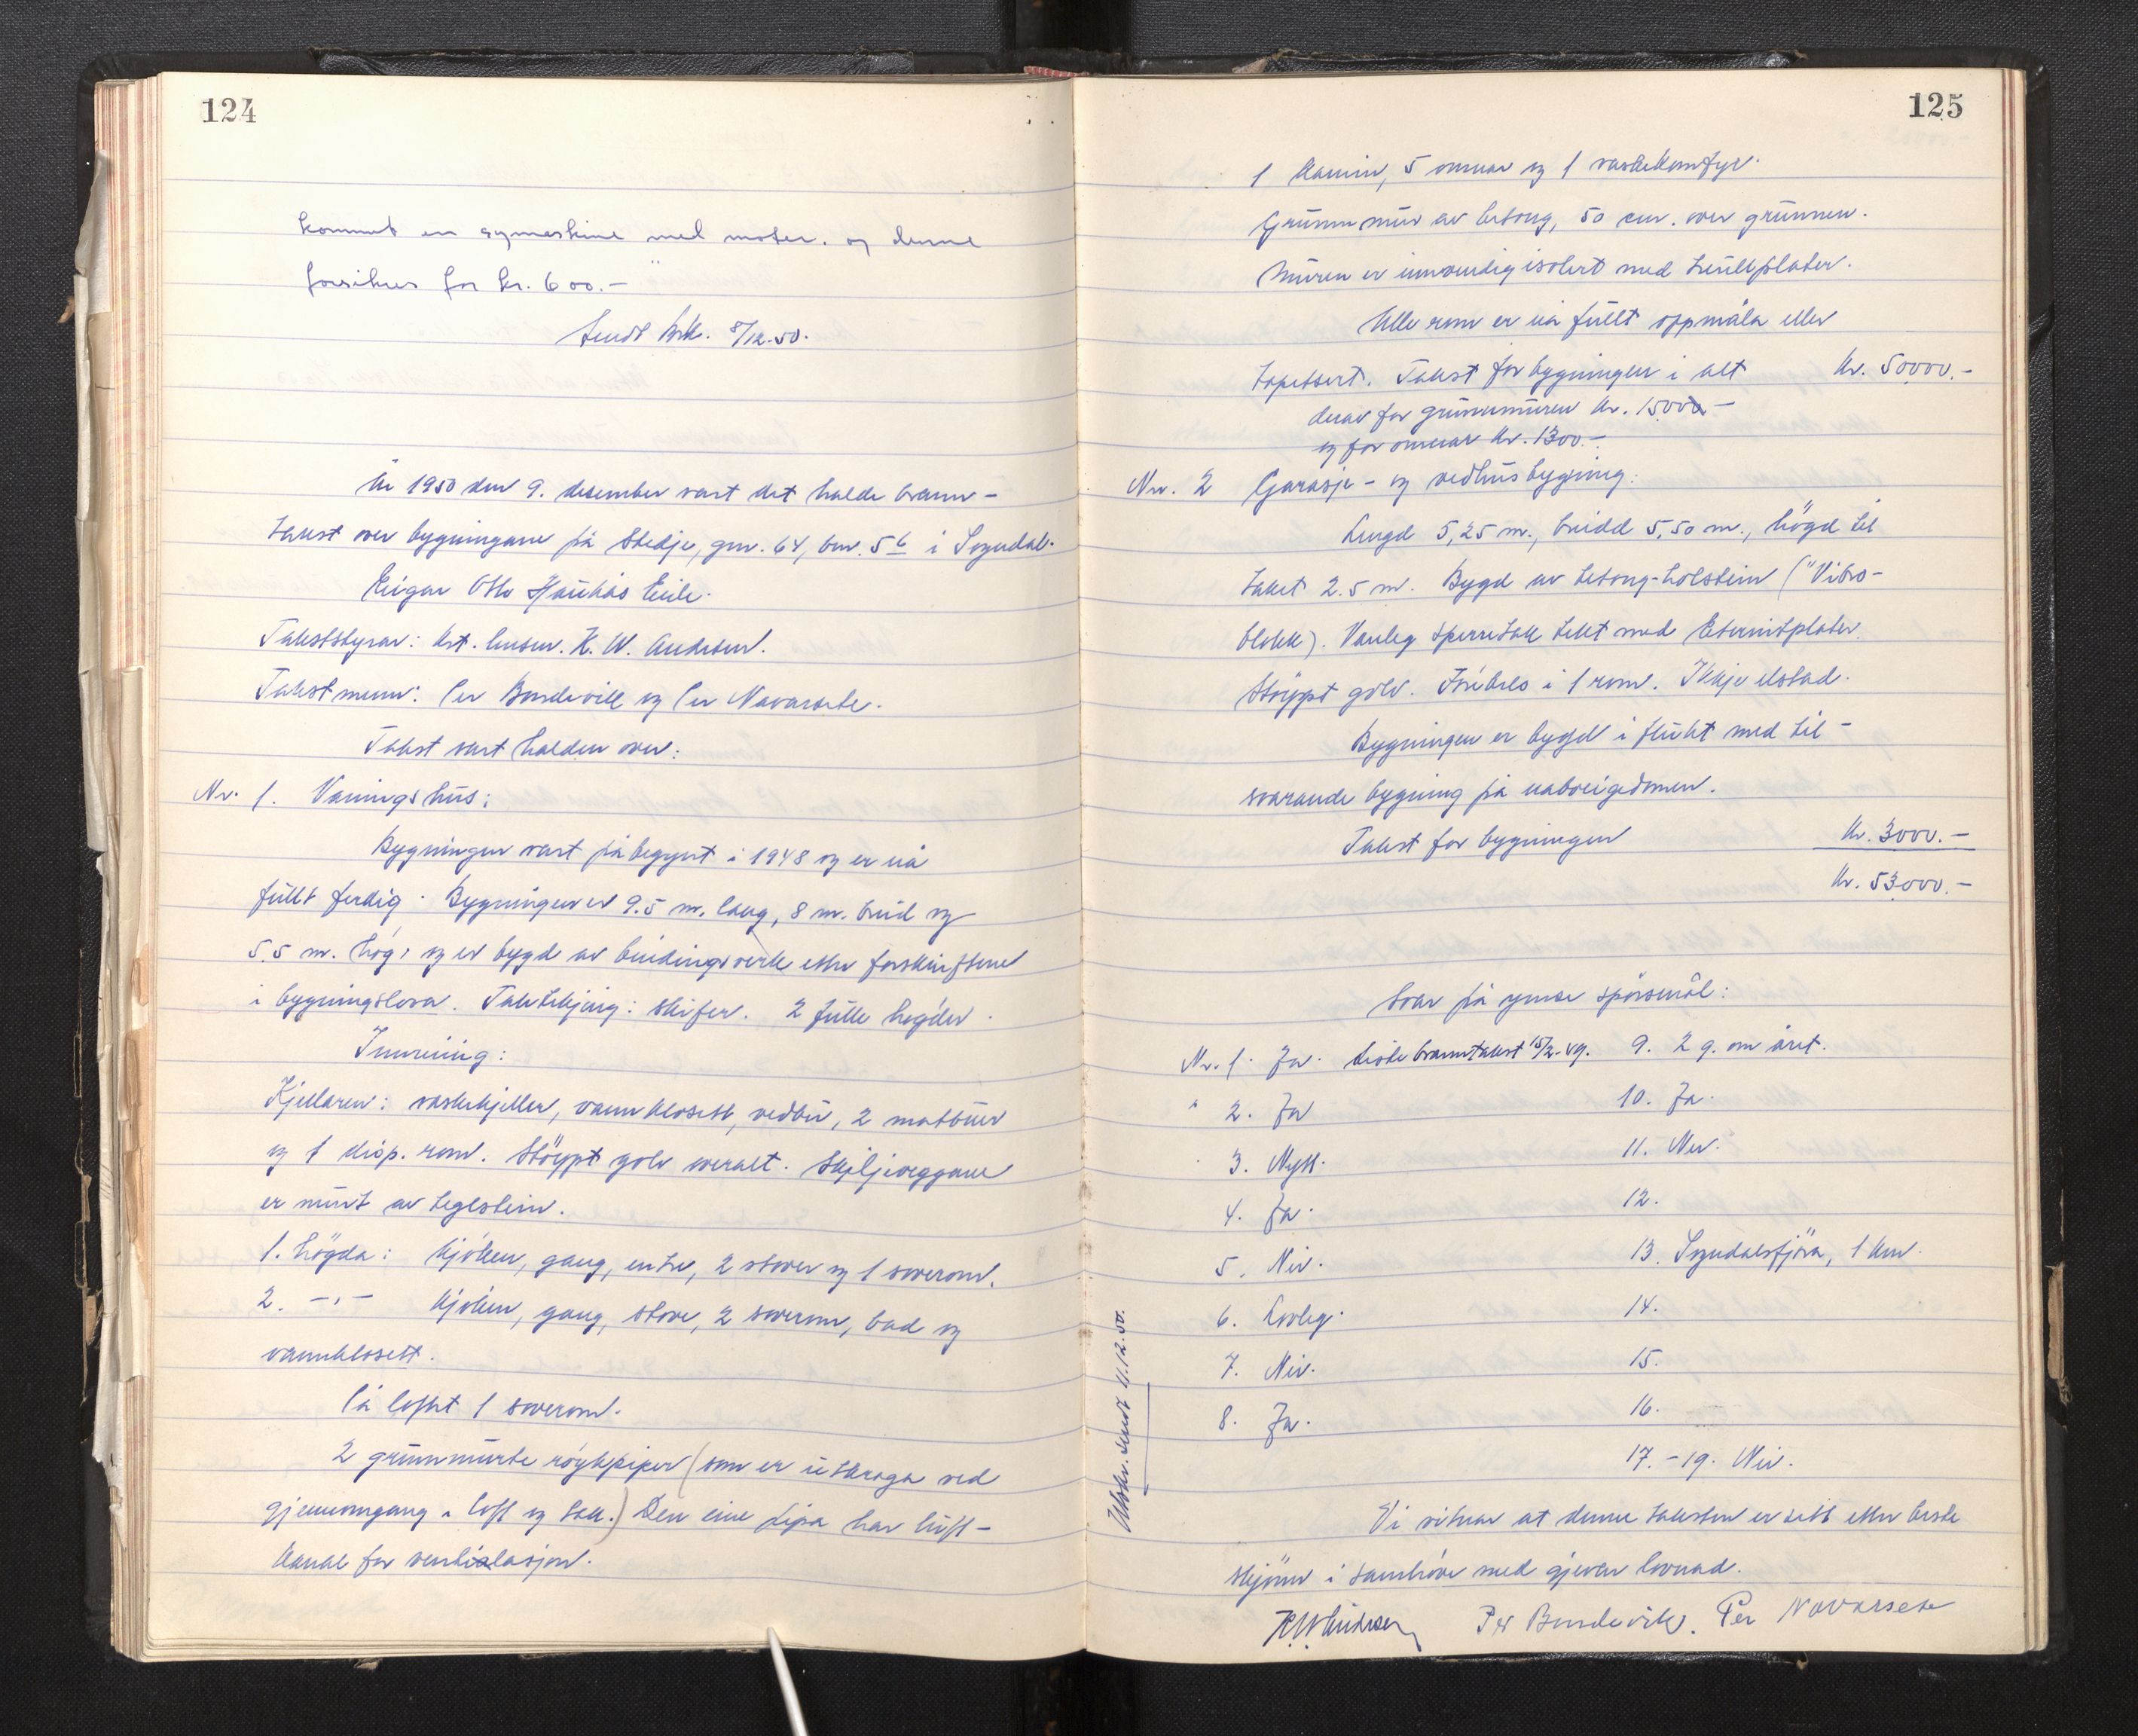 124
kommet en symaskine med motor. og denne
forsikres for kr. 600.-
Sendt brk. 8/12-50.
År 1950 den 9. desember vart det halde brann-
takst over bygningane på Stedje, gnr. 64, bnr. 56 i Sogndal.
Eigar Otto Haukås Eide.
Takststyrar: krt. lensm. K. W. Andersen.
Takstmenn: Per Bondevik og Per Navarsete.
Takst vart halden over:
Nr. 1. Våningshus:
Bygningen vart påbegynt i 1948 og er nå
fullt ferdig. Bygningen er 9.5 m. lang, 8 m. breid og
5.5 m. høg, og er bygd av bindingsverk etter forskriftene
i bygningslova. Taktekjing: skifer. 2 fulle høgder.
Innreiing:
Kjellaren: vaskekjeller, vannklosett, vedbu, 2 matbuer
og 1 disp. rom. Støypt golv overalt. Skiljeveggane
er murt av teglstein.
1. høgda: kjøken, gang, entre, 2 stover og 1 soverom.
2. -"- kjøken, gang, stove, 2 soverom, bad og
vannklosett.
På loftet 1 soverom.
2 grunnmurte røykpiper (som er utkraga ved
gjennomgang i loft og tak.) Den eine pipa har luft-
kanal for ventilasjon.
125
1 kamin, 5 omnar og 1 vaskekomfyr.
Grunnmur av betong, 50 cm. over grunnen.
Muren er innvendig isolert med treullplater.
Alle rom er nå fullt oppmåla eller
tapetsert. Takst for bygningen i alt kr. 50000.-
derav for grunnmuren kr. 15000.-
og for omnar kr. 1300.-
Nr. 2 Garasje- og vedhusbygning:
Lengd 5,25 m., breidd 5,50 m., høgd til
taket 2.5 m. Bygd av betong-holstein ("Vibro-
blokk). Vanleg sperretak tekt med Eternitplater.
Støypt golv. Innbels i 1 rom. Ikkje eldstad.
Bygningen er bygd i flukt med til-
svarande bygning på naboeigedomen.
Takst for bygningen kr. 3000.-
kr. 53000.-
Svar på ymse spørsmål:
Nr. 1. Ja. Siste branntakst 15/2-49. 9. 2 g. om året.
" 2. Ja 10. Ja.
3. Nytt. 11. Nei.
4. Ja. 12.
5. Nei. 13. Sogndalsfjøra, 1 km.
6. Lovleg. 14.
7. Nei. 15.
8. Ja. 16.
17.-19. Nei.
Utskr. sendt 11.12.50.
Vi vitnar at denne taksten er sett etter beste
skjønn i samhøve med gjeven lovnad.
K W Andersen Per Bondevik. Per Navarsete